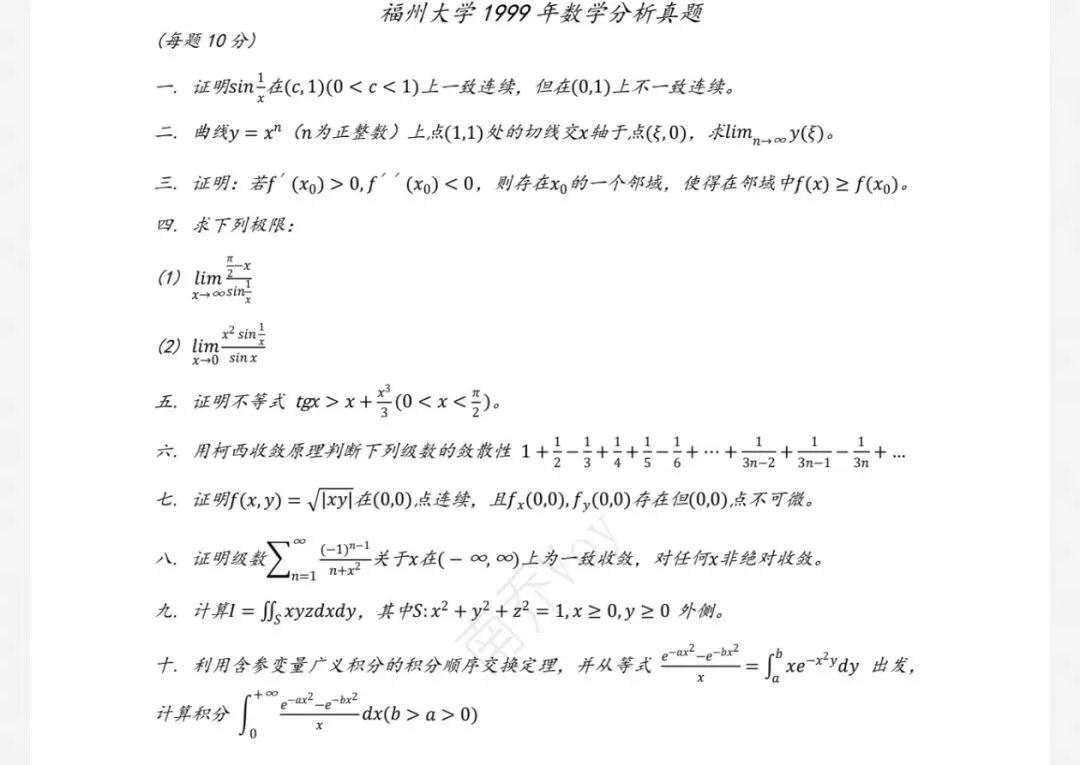 福州大学1999年数学分析真题
(每题10分)
一. 证明sin\frac{1}{x}在(c,1)(0<c<1)上一致连续，但在(0,1)上不一致连续。
二. 曲线y=x^n（n为正整数）上点(1,1)处的切线交x轴于点(ξ,0)，求lim_{n→∞}y(ξ)。
三. 证明：若f´(x_0)>0,f´´(x_0)<0，则存在x_0的一个邻域，使得在邻域中f(x)≥f(x_0)。
四. 求下列极限：
(1) lim_{x→∞}\frac{\frac{π}{2}-x}{sin\frac{1}{x}}
(2) lim_{x→0}\frac{x^2 sin\frac{1}{x}}{sin x}
五. 证明不等式 tgx>x+\frac{x^3}{3}(0<x<\frac{π}{2})。
六. 用柯西收敛原理判断下列级数的敛散性 1+\frac{1}{2}-\frac{1}{3}+\frac{1}{4}+\frac{1}{5}-\frac{1}{6}+⋯+\frac{1}{3n-2}+\frac{1}{3n-1}-\frac{1}{3n}+…
七. 证明f(x,y)=\sqrt{|xy|}在(0,0)点连续，且f_x(0,0),f_y(0,0)存在但(0,0)点不可微。
八. 证明级数\sum_{n=1}^{∞}\frac{(-1)^{n-1}}{n+x^2}关于x在(-∞,∞)上为一致收敛，对任何x非绝对收敛。
九. 计算I=∬_S xyzdxdy，其中S:x^2+y^2+z^2=1,x≥0,y≥0 外侧。
十. 利用含参变量广义积分的积分顺序交换定理，并从等式 \frac{e^{-ax^2}-e^{-bx^2}}{x}=\int_a^b xe^{-x^2y}dy 出发，
计算积分\int_0^{+∞}\frac{e^{-ax^2}-e^{-bx^2}}{x}dx(b>a>0)
南乔Voy